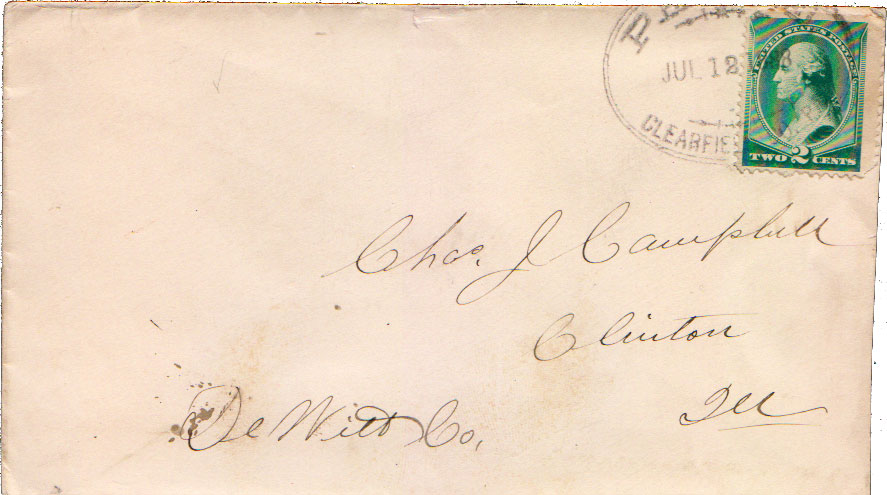 JUL 12
CLEARFIE
UNITED STATES POSTAGE
TWO 2 CENTS
Chas. J Campbell
Clinton
De Witt Co,
Ill